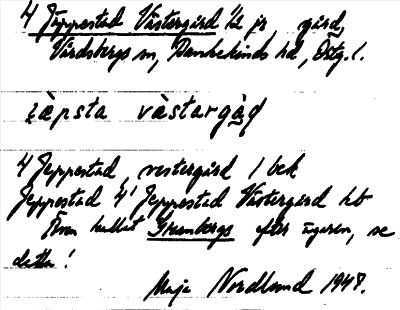 4 Jeppestad Västergård ½ jr gård,
Vårdsbergs sn, Bankekinds hd, Östg. l.
i̯àpsta vàstargåḍ
4 Jeppestad, vestergård 1 bek
Jeppestad 4 Jeppestad Västergård kb
Även kallat Grenbergs efter ägaren, se
detta!
Maja Nordlund 1948.